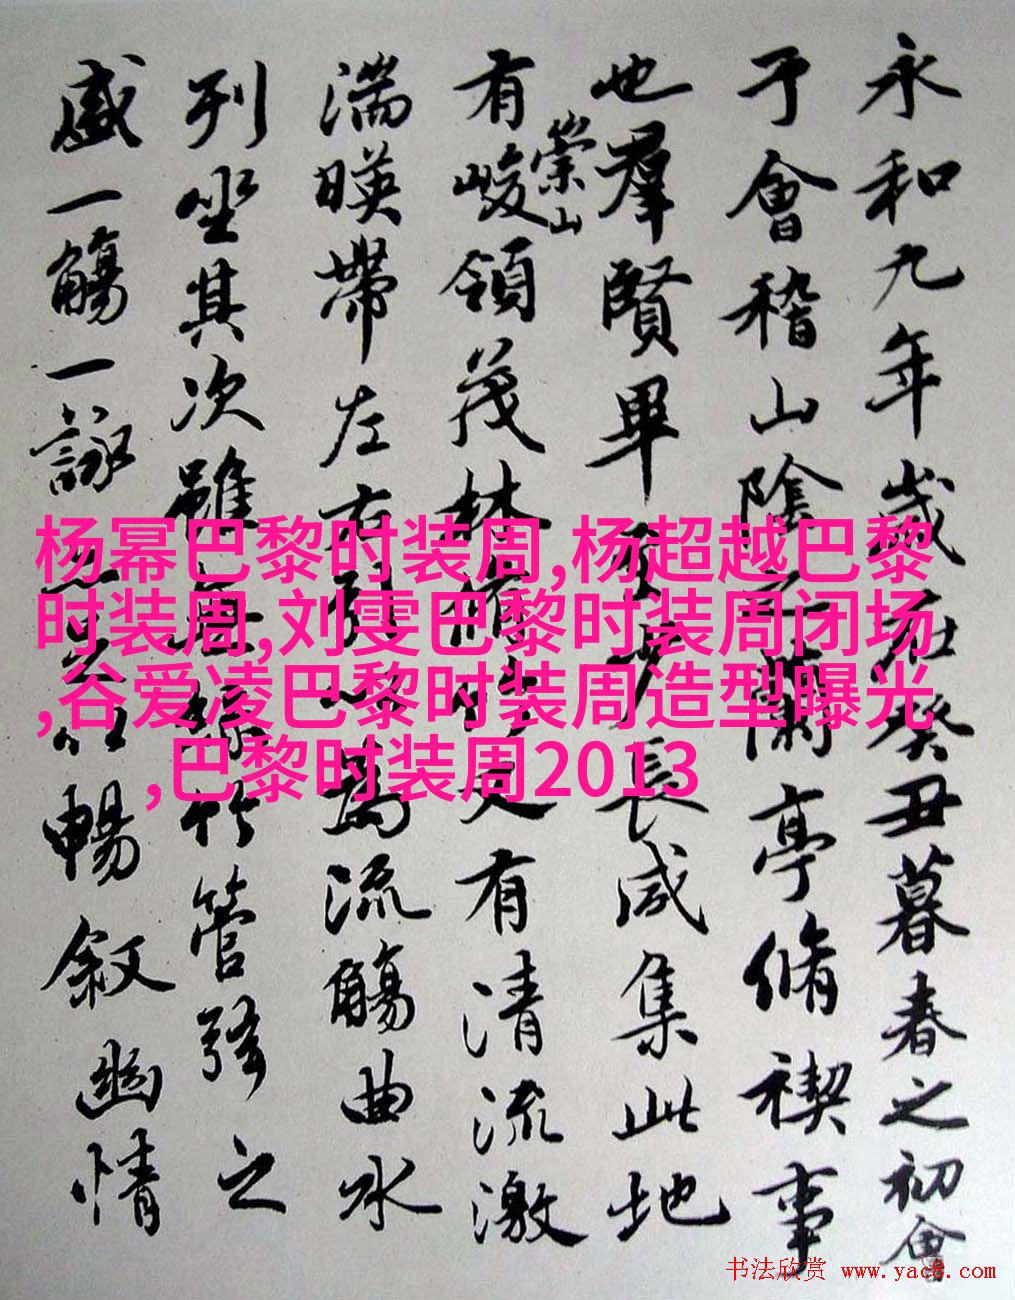 永和九年歲在癸丑暮春之初會
于會稽山陰之蘭亭脩禊事
也羣賢畢至少長咸集此地
有崇山峻領茂林脩竹又有清流激
湍暎帶左右引以為流觴曲水
列坐其次雖無絲竹管弦之
盛一觴一詠亦足以暢敘幽情
杨幂巴黎时装周,杨超越巴黎
时装周,刘雯巴黎时装周闭场
,谷爱凌巴黎时装周造型曝光
,巴黎时装周2013
书法欣赏 www.yac8.com